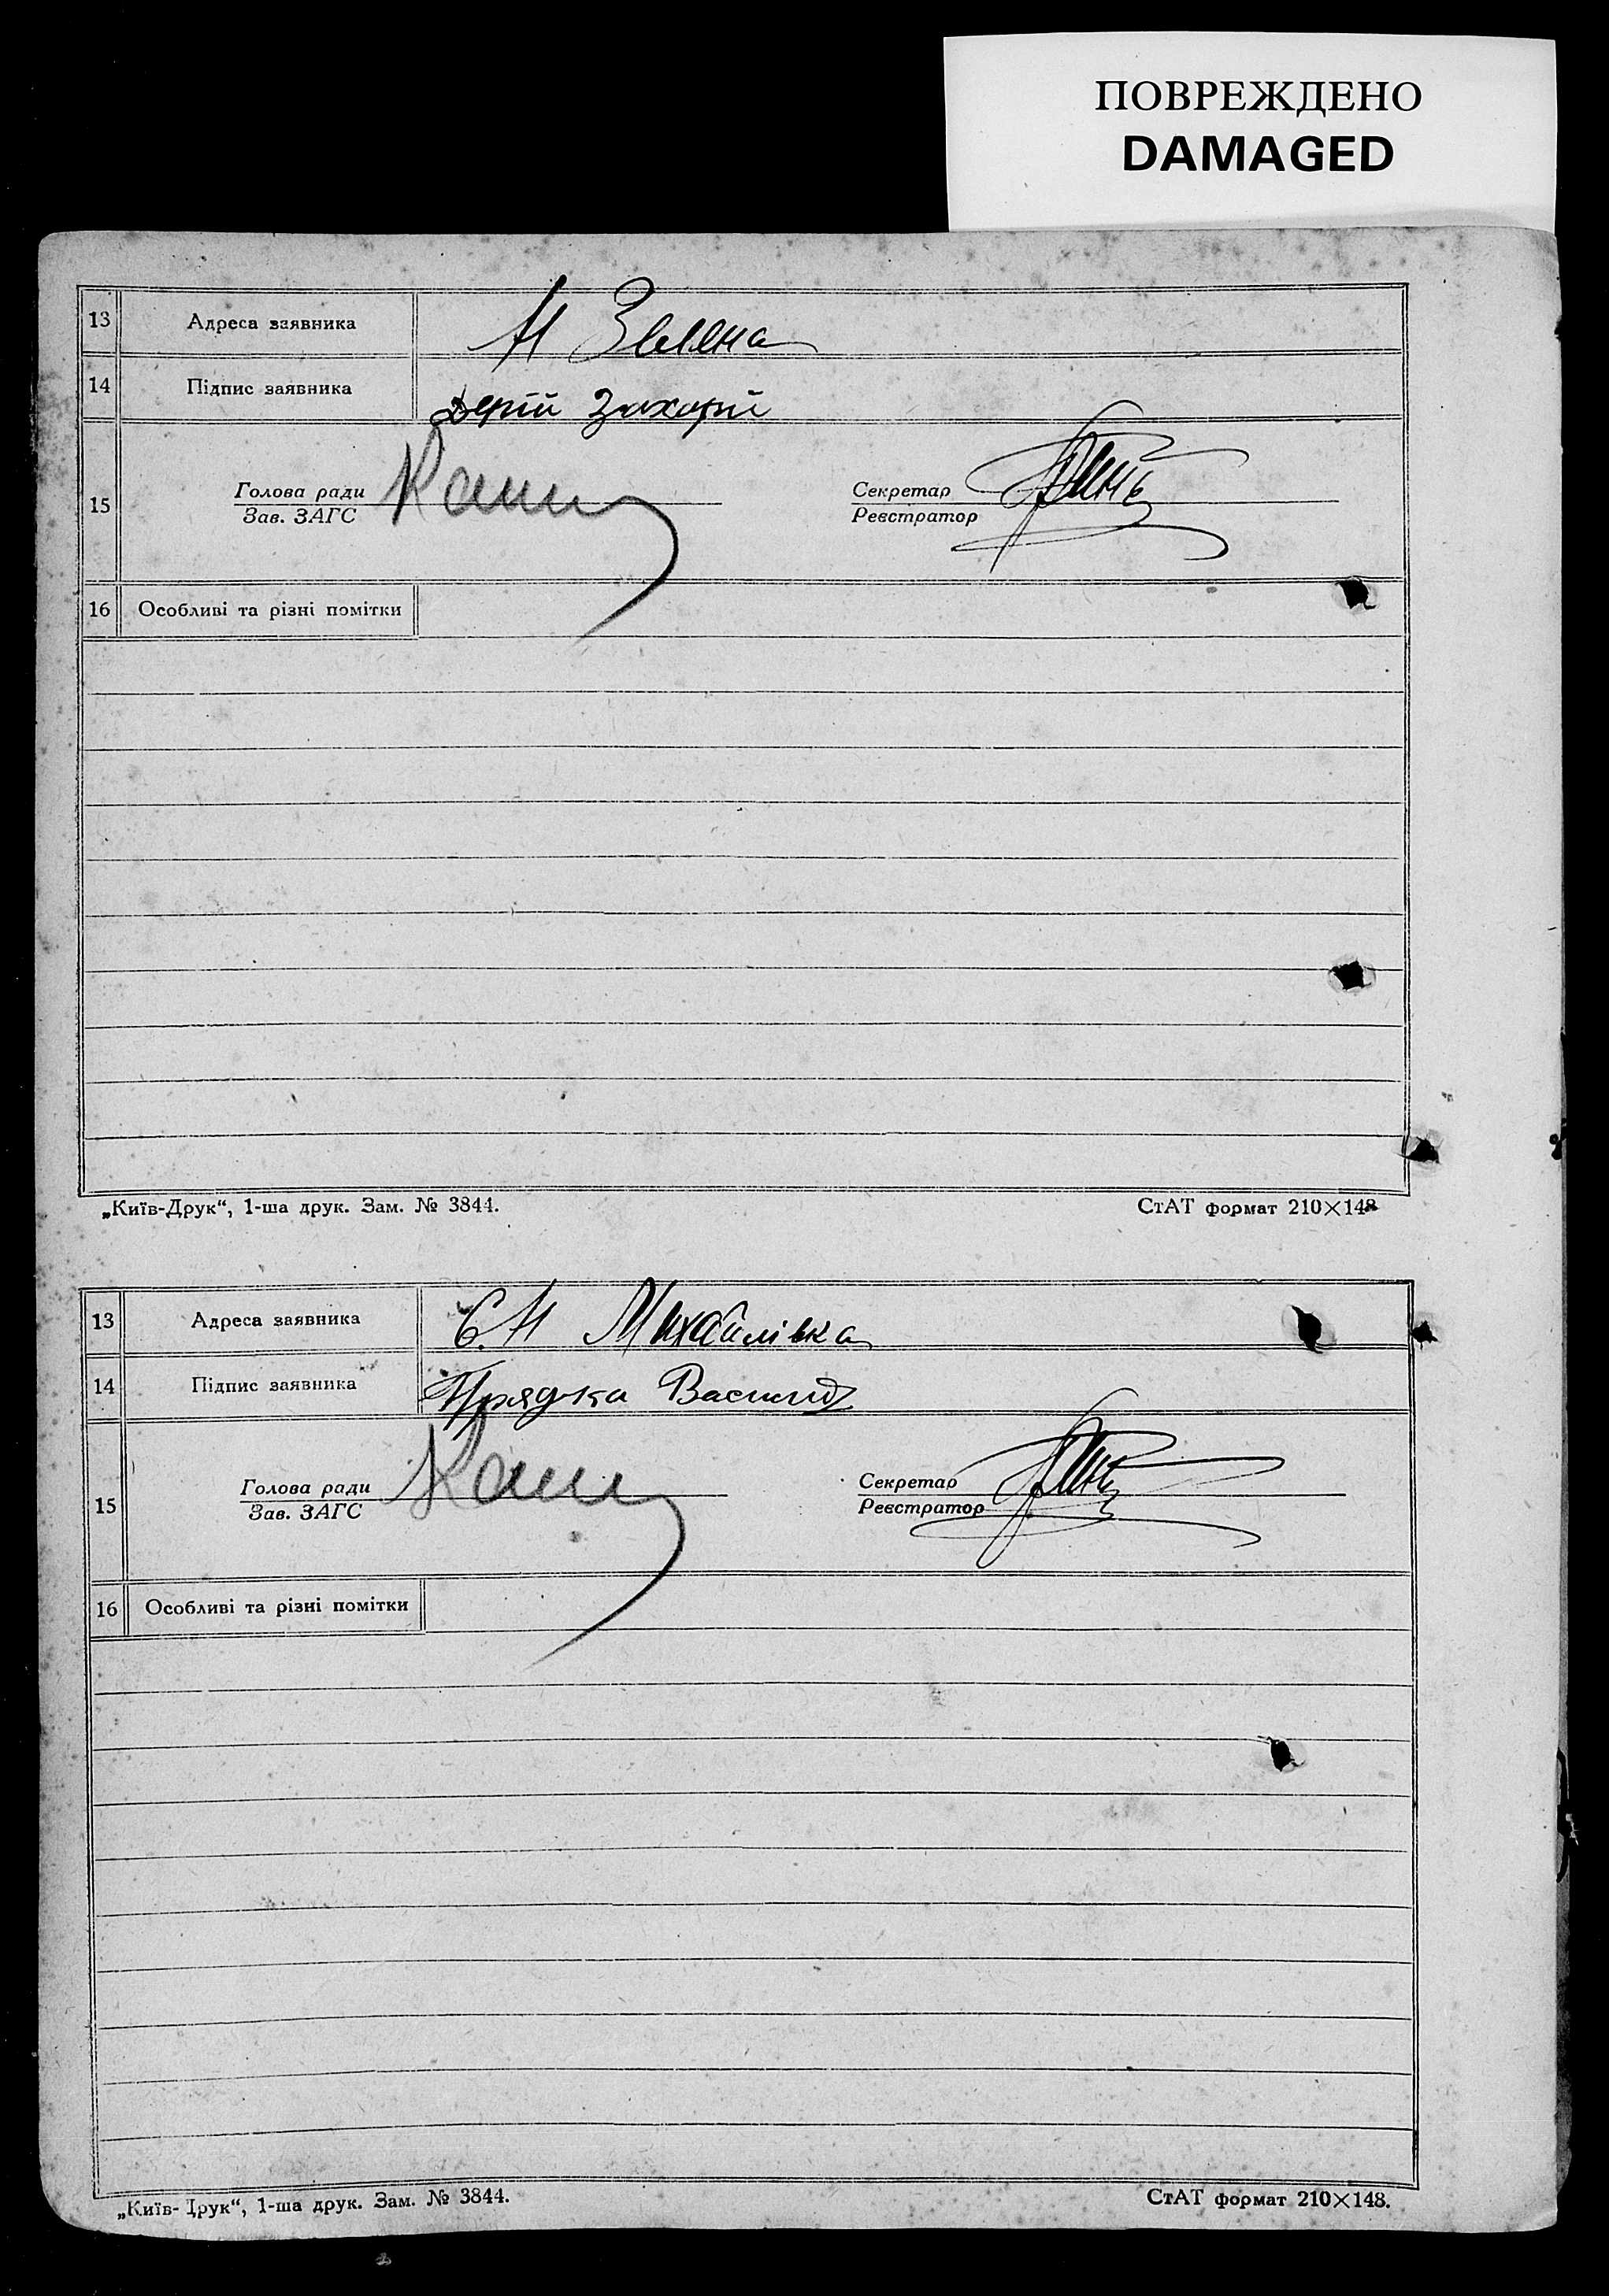 ПОВРЕЖДЕНО
DAMAGED
13 Адреса заявника Н Зелена
14 Підпис заявника Дерій Захарій
15 Голова ради Секретар
Зав. ЗАГС Реєстратор
16 Особливі та різні помітки
„Київ-Друк“, 1-ша друк. Зам. № 3844. СтАТ формат 210×148
13 Адреса заявника Михайлівка
14 Підпис заявника Прядка Василь
15 Голова ради Секретар
Зав. ЗАГС Реєстратор
16 Особливі та різні помітки
„Київ-Друк“, 1-ша друк. Зам. № 3844. СтАТ формат 210×148.